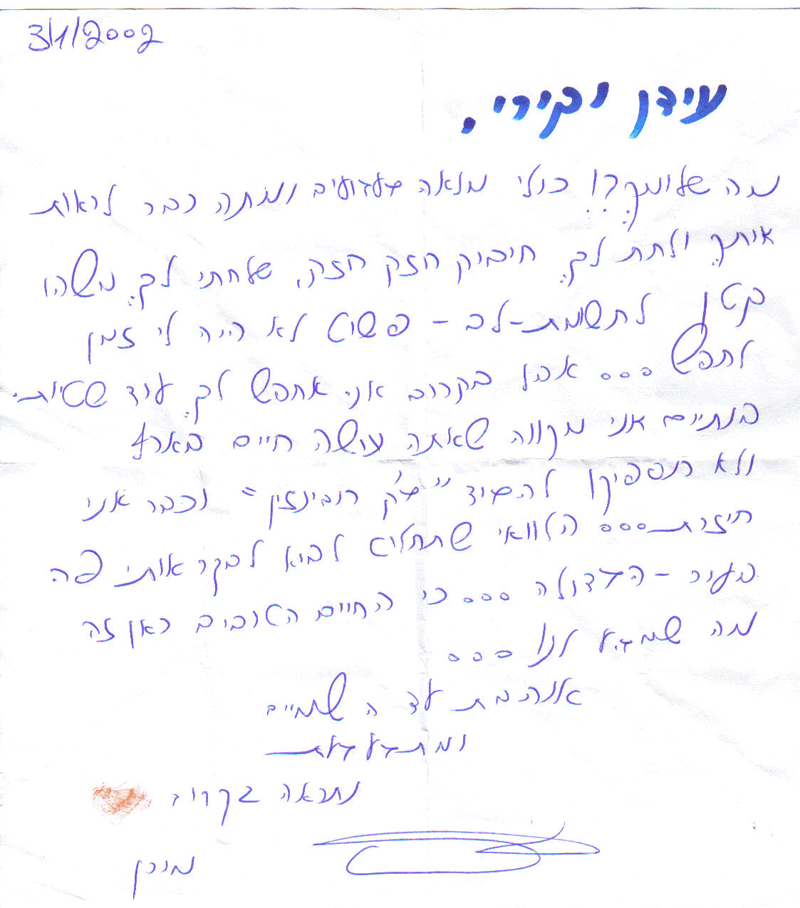 3/1/2002
עידן יקירי.
מה שלומך?! כולי מלאה געגועים ומתה כבר לראות
איתך ולתת לך חיבוק חזק חזק, שלחתי לך משהו
קטן לתשומת-לב - פשוט לא היה לי זמן
לחפש... אבל בקרוב אני אחפש לך עוד שטויות.
בנתיים אני מקווה שאתה עושה חיים בארץ
ולא תספיקו להגיד "ג'ק רובינזון" וכבר אני
חוזרת... הלוואי שתחליט לבוא לבקר אותי פה
בעיר - הגדולה... כי החיים הטובים כאן זה
מה שמגיע לנו...
אוהבת עד השמיים
ומתגעגעת
נתראה בקרוב